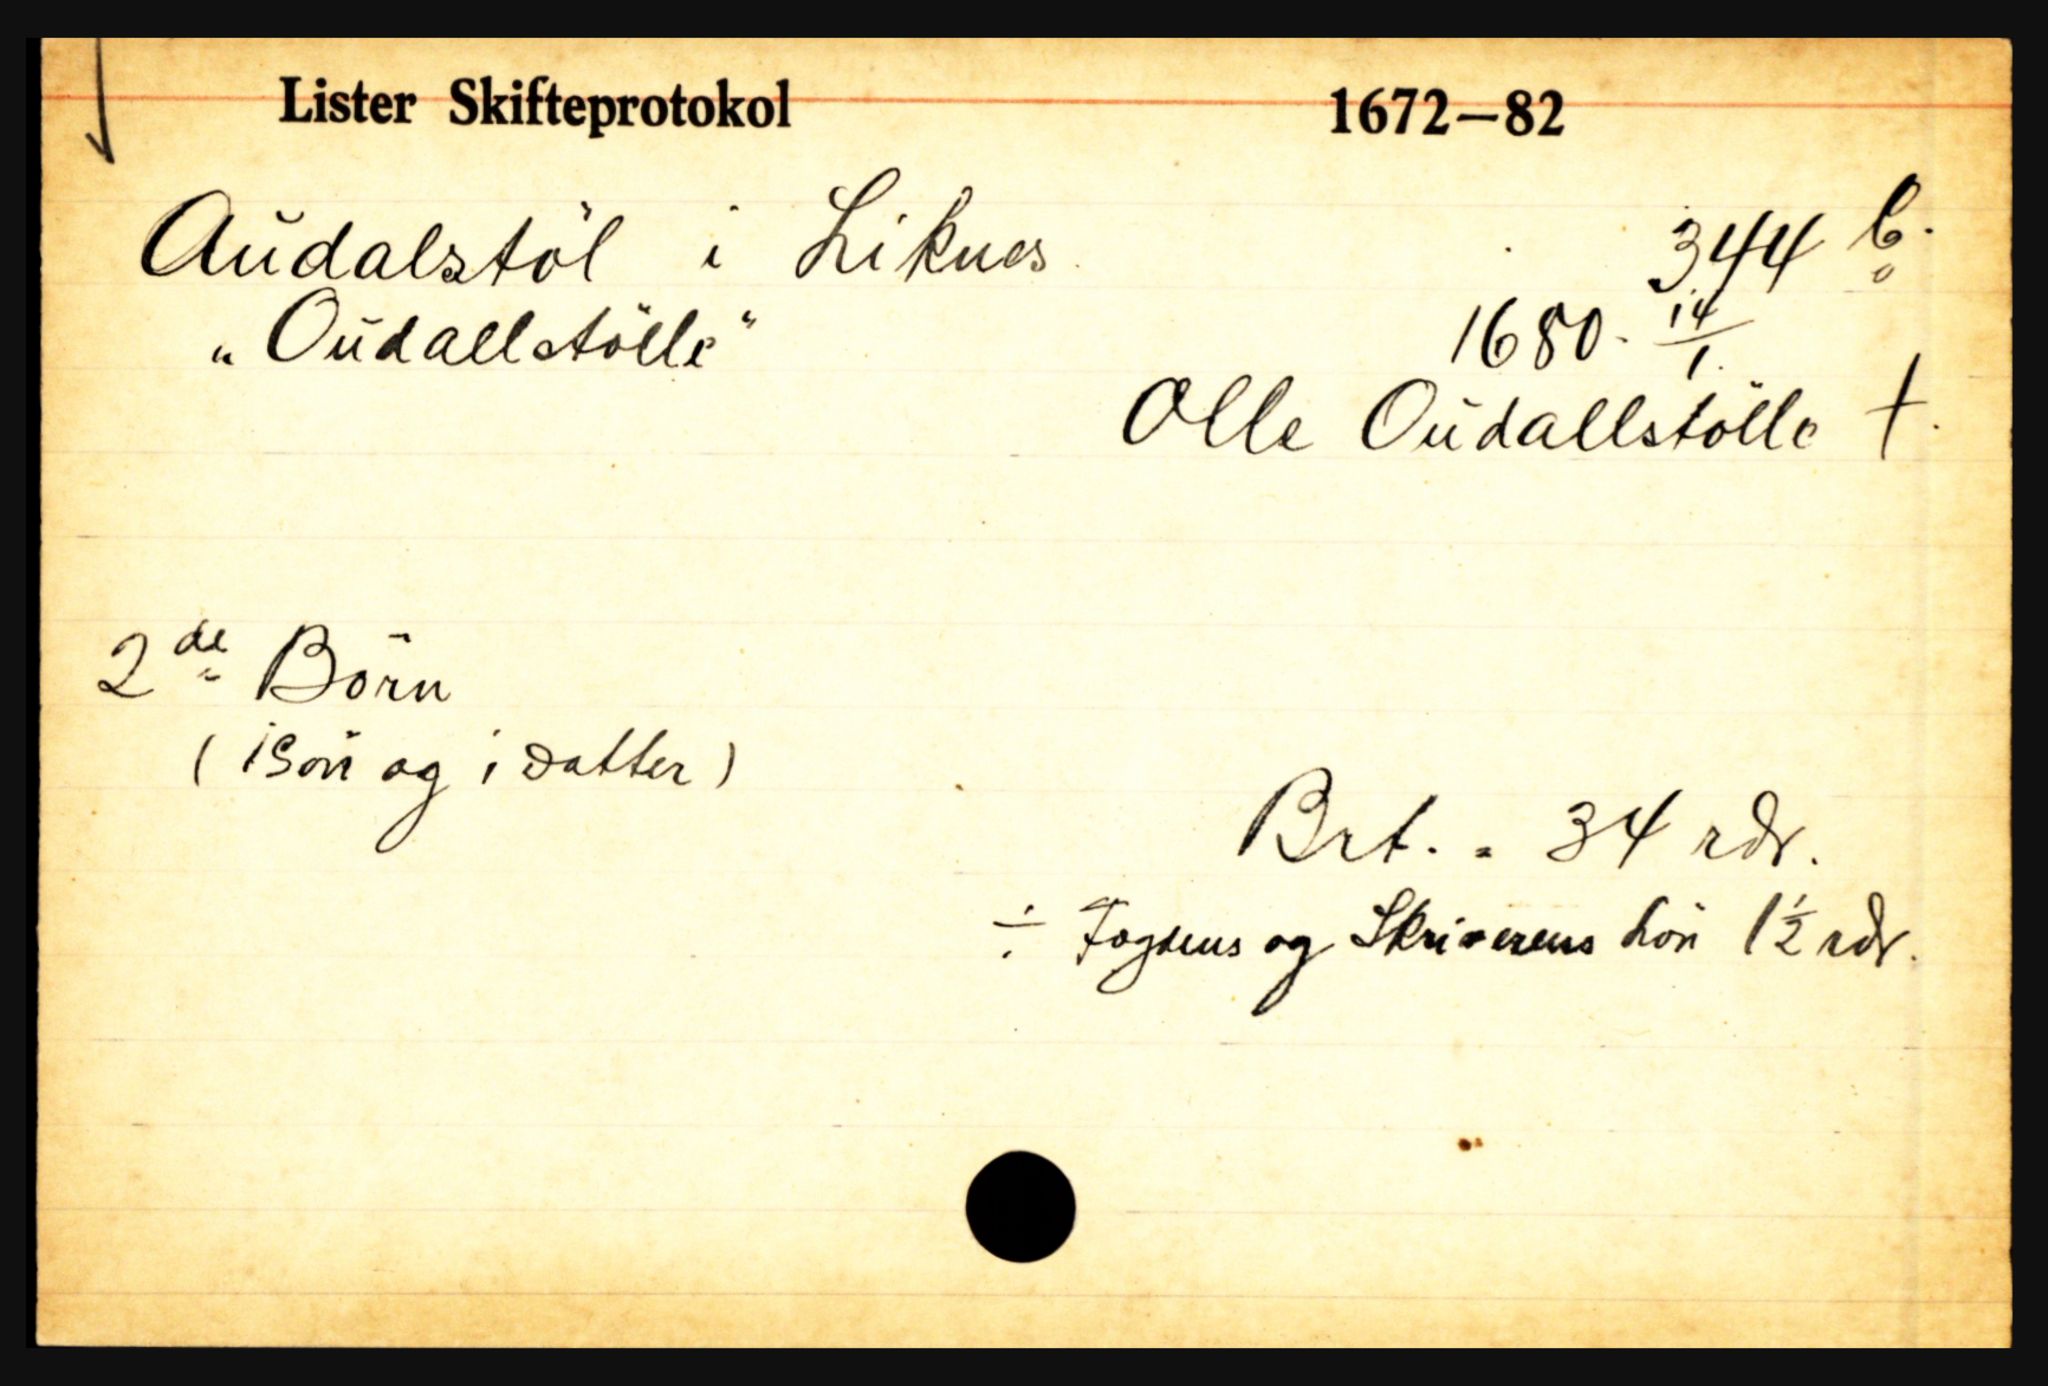 Lister Skifteprotokol 1672—82
Audalstöl i Liknes 344 b.
„Oudallstölle“ 1680. 14/1.
Olle Oudallstölle †.
2de Börn
(1 Sön og 1 Datter)
Brt. = 34 rdr.
÷ Fogdens og Skriverens Lön 1 1/2 rdr.